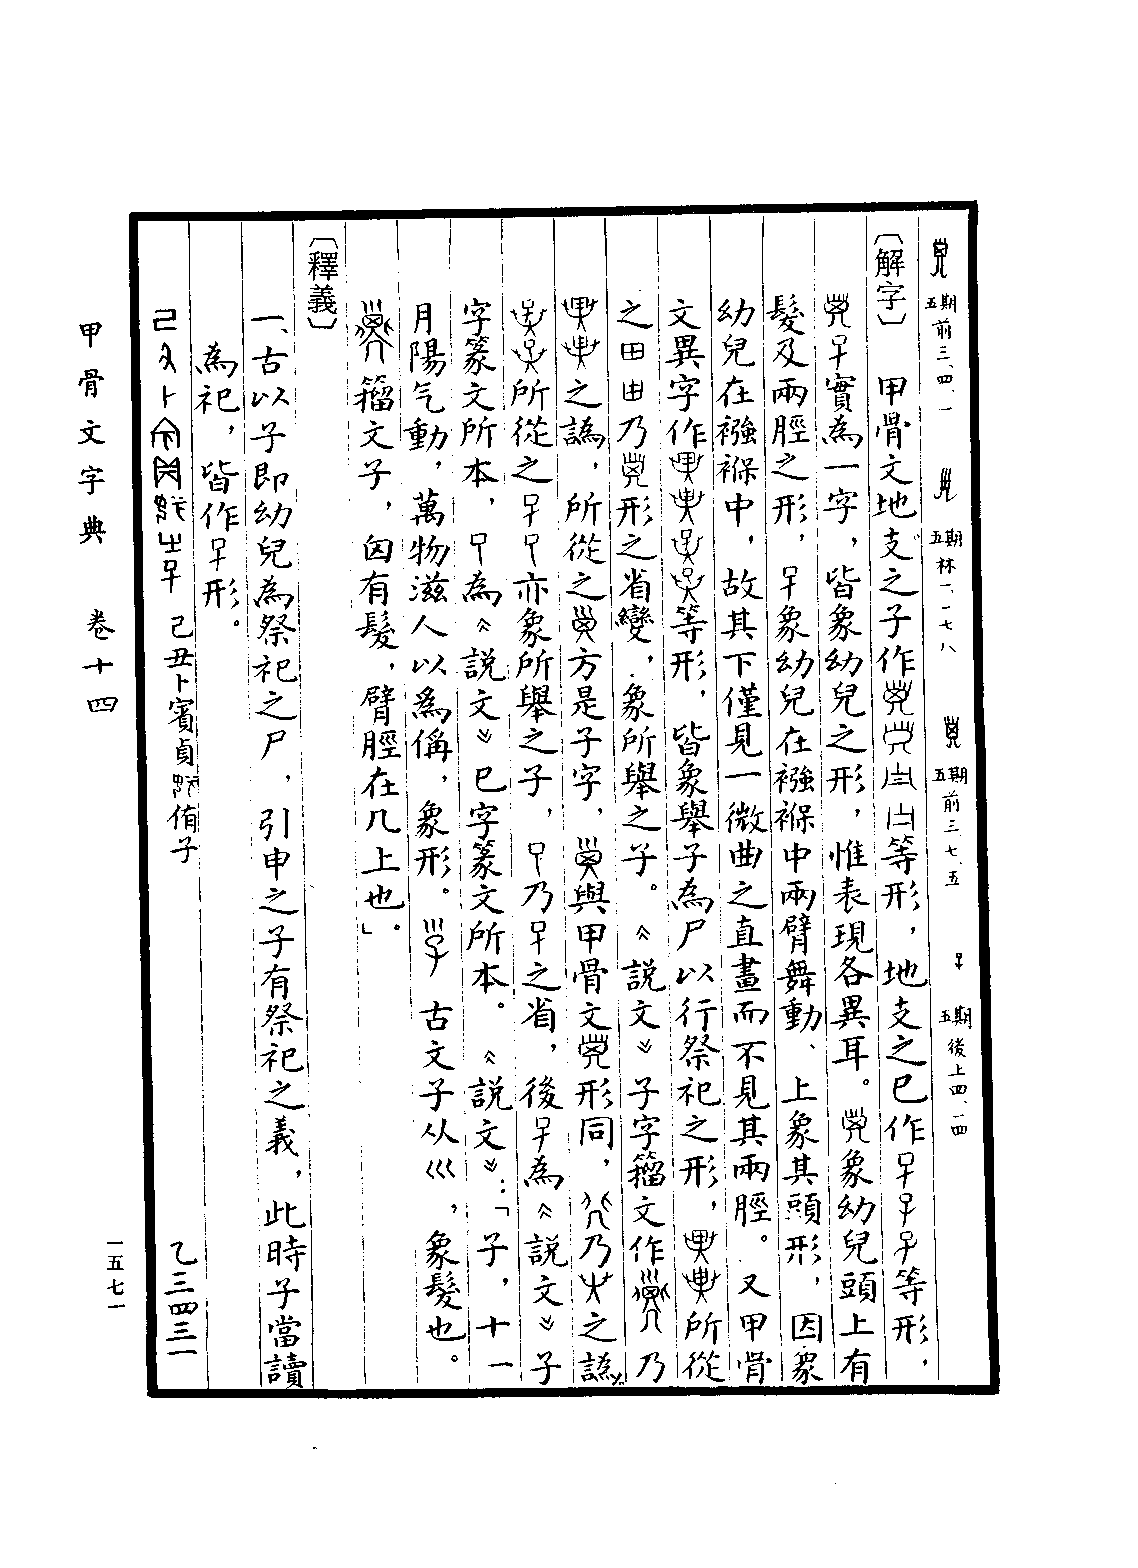 五期 前三、四、一 五期 林一、一七八 五期 前三七、五 五期 後上四、一四
〔解字〕 甲骨文地支之子作等形，地支之巳作等形，
實為一字，皆象幼兒之形，惟表現各異耳。象幼兒頭上有
髮及兩脛之形，象幼兒在襁褓中兩臂舞動、上象其頭形，因象
幼兒在襁褓中，故其下僅見一微曲之直畫而不見其兩脛。又甲骨
文異字作等形，皆象舉子為尸以行祭祀之形，所從
之田由乃形之省變，象所舉之子。《說文》子字籀文作乃
之譌，所從之方是子字，與甲骨文形同，乃之譌，
所從之亦象所舉之子，乃之省，後為《說文》子
字篆文所本，為《說文》巳字篆文所本。《說文》：「子，十一
月陽气動，萬物滋人以為偁，象形。古文子从巛，象髮也。
籀文子，囟有髮，臂脛在几上也。」
〔釋義〕
一、古以子即幼兒為祭祀之尸，引申之子有祭祀之義，此時子當讀
為祀，皆作形。
己丑卜賓貞侑子 乙三四三一
甲骨文字典 卷十四 一五七一